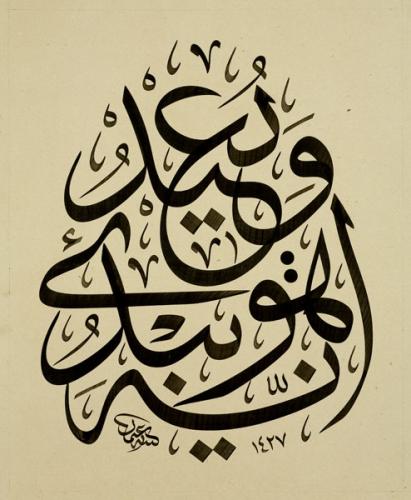 انه هو يبدئ
ويعيد
١٤٢٧